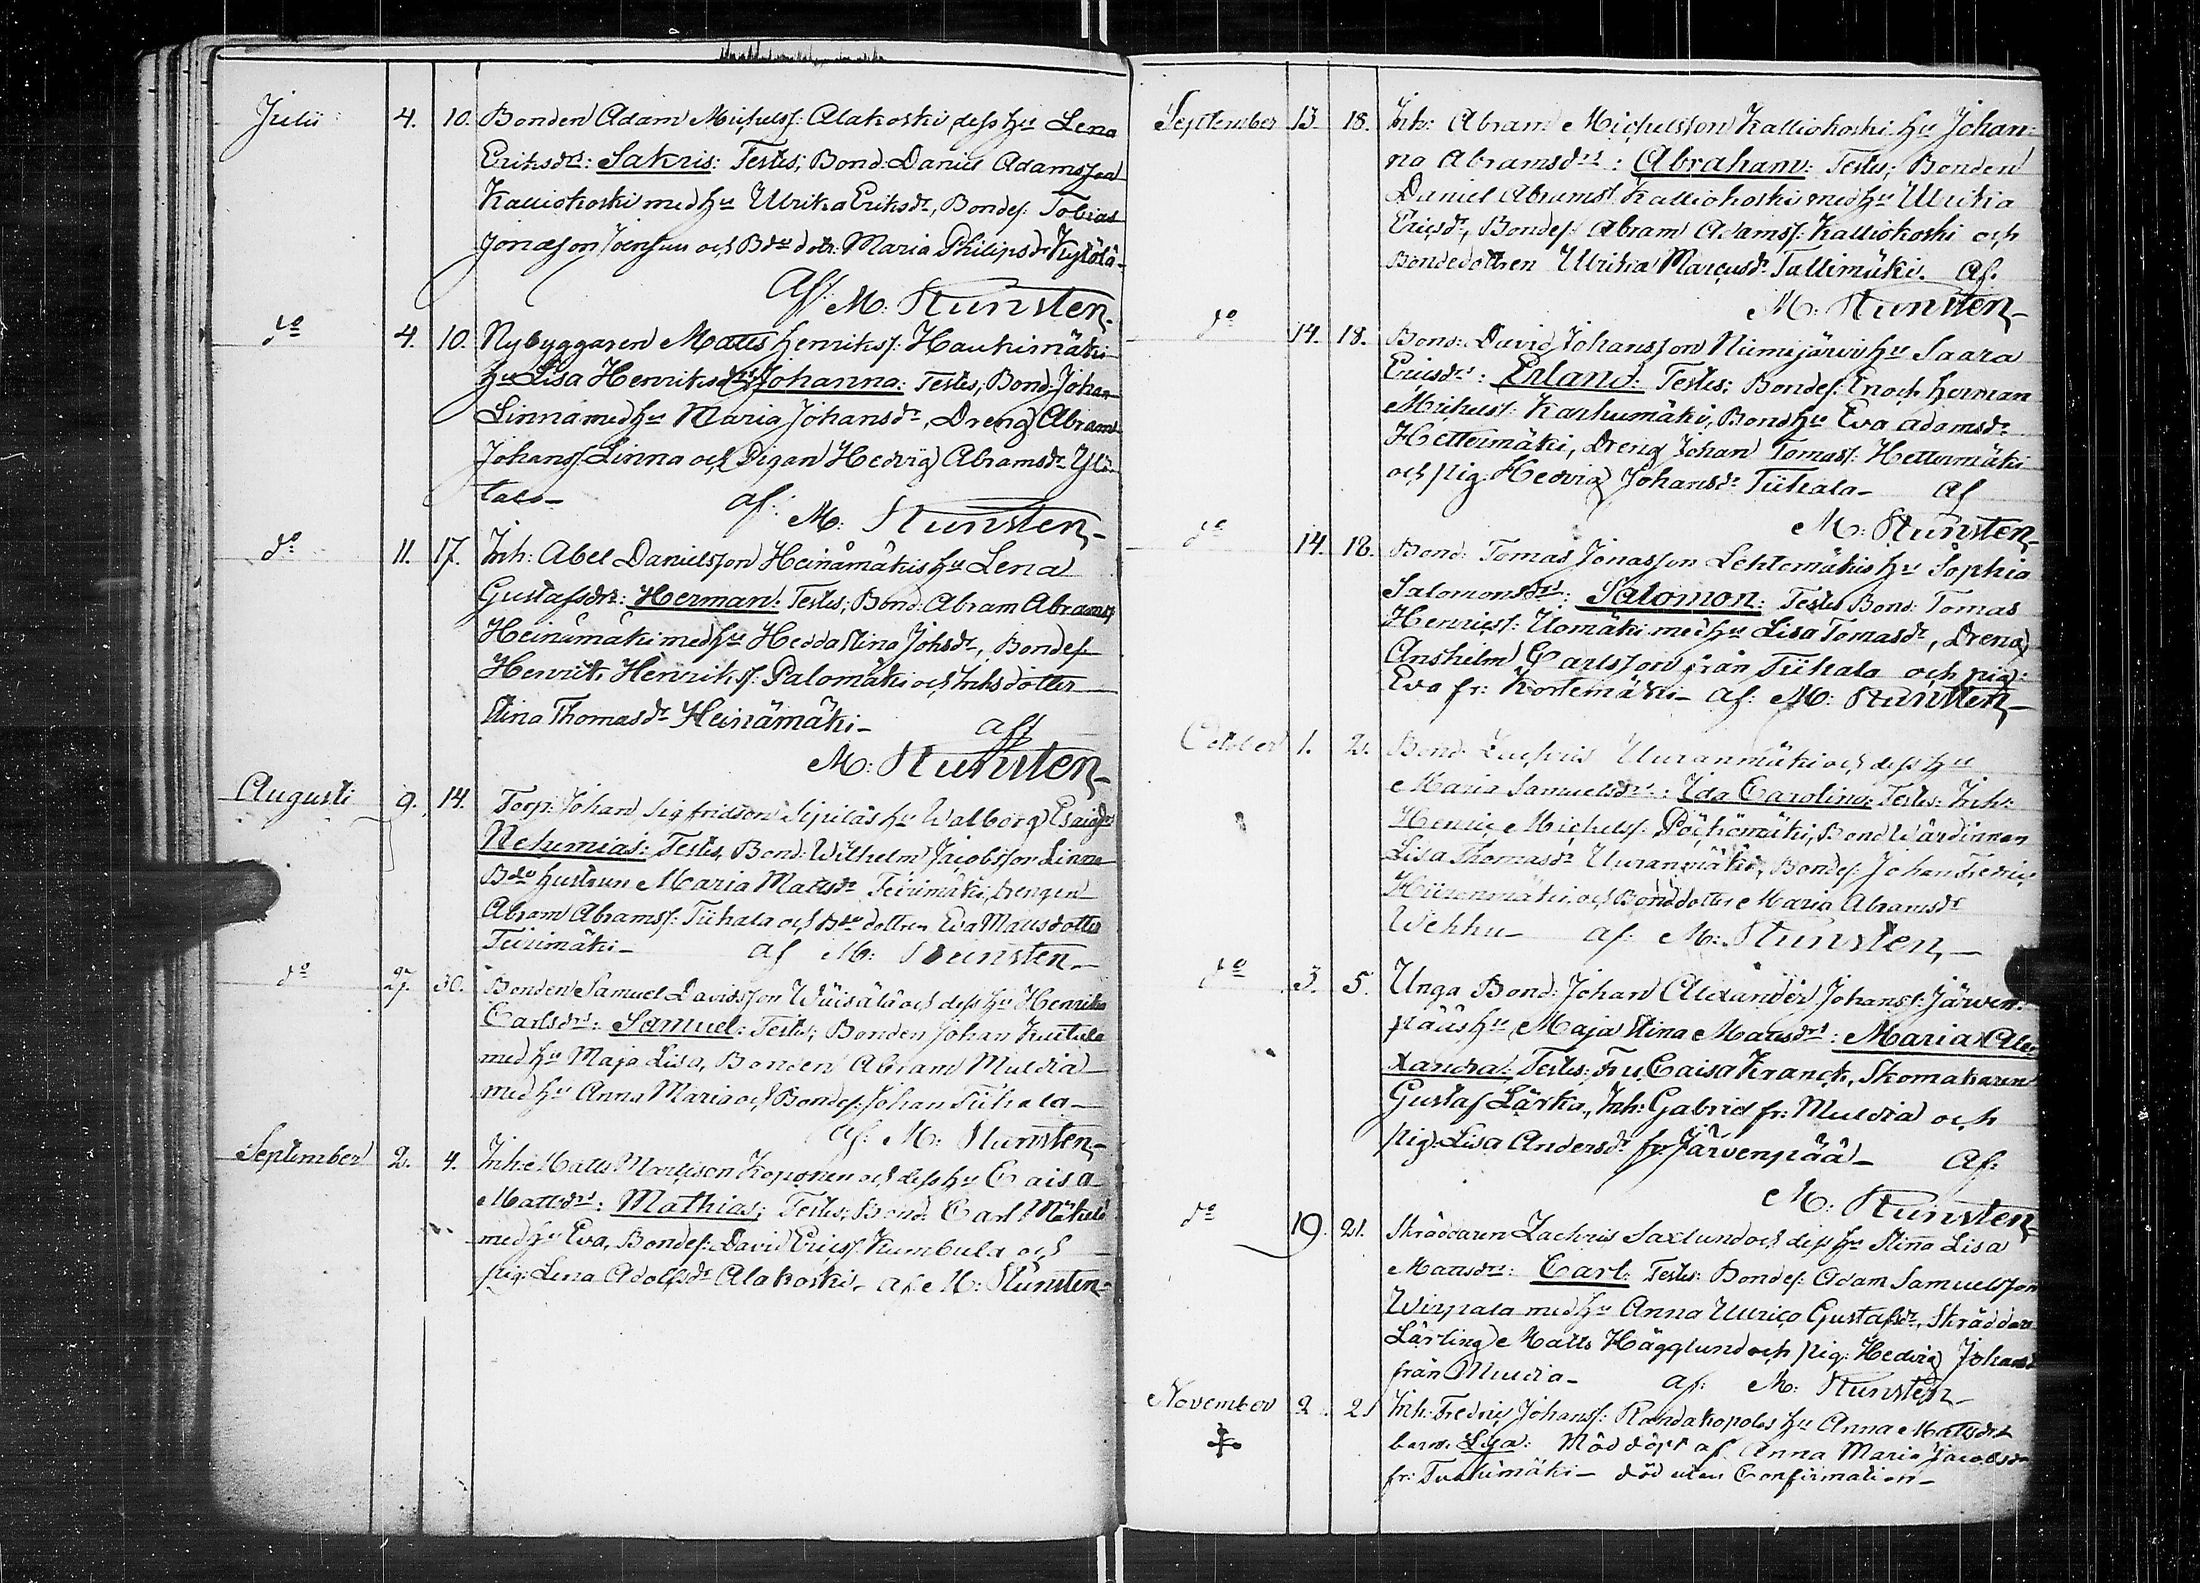 Julii 4. 10. Bonden Adam Michelss: Alakoski dess Hu Lena
Eriksdr: Sakris: Testes; Bond: Daniel Adamsson
Kalliokoski med Hu Ulrika Eriksdr, Bondes. Tobias
Jonasson Joensuu och Bde dotr: Maria Philipsdr Kylölä
Af: M: Stunsten
do 4. 10. Nybyggaren Matts Henrikss: Haukimäki
Hu Lisa Henriksdr: Johanna: Testes; Bond: Johan
Linna med Hu Maria Johansdr, Dreng Abram
Johanss: Linna och Pigan Hedvig Abramsdr Yli-
talo af: M: Stunsten
do 11. 17. Inh: Abel Danielsson Heinämäkis Hu Lena
Gustafsdr: Herman: Testes; Bond: Abram Abramss
Heinämäki med Hu Hedda Stina Johsdr, Bondes.
Henrik Henrikss: Palomäki och Inhs dotter
Stina Thomasdr Heinämäki af
M: Stunsten
Augusti 9. 14. Torp: Johan Sigfridson Sipiläs Hu Walborg Esaiædr
Nehemias: Testes, Bond: Wilhelm Jacobsson Linna
Bde hustrun Maria Mattsdr Teirimäki, Drengen
Abram Abramss: Tiihala och Bde dottren Eva Mattsdotter
Teirimäki af M: Stunsten
do 27. 30. Bonden Samuel Davidsson Wiisälä och dess Hu Henrika
Carlsdr: Samuel: Testes; Bonden Johan Kuttula
med Hu Maja Lisa, Bonden Abram Muldia
med Hu Anna Maria och Bondes: Johan Tiihala
af: M: Stunsten
September 2. 4. Inh: Matts Mattsson Koponen och dess Hu Caisa
Mattsdr: Mathias; Testes; Bond: Carl Mäkelä
med Hu Eva, Bondes: David Ericss: Kumbula och
pig: Lena Adolfsdr Alakoski af M: Stunsten
September 13 18. Inh: Abram Michelsson Kalliokoski Hu Johan-
na Abramsdr: Abraham: Testes; Bonden
Daniel Abramss: Kalliokoski med Hu Ulrika
Ericsdr, Bondes: Abram Adamss: Kalliokoski och
Bondedottren Ulrika Marcusdr Tallimäki. Af:
M: Stunsten
do 14. 18. Bond: David Johansson Niemijärvi Hu Saara
Ericsdr: Erland: Testes: Bondes. Enoch Herman
Michelss: Karhumäki, Bond Hu Eva Adamsdr
Hettermäki, Dreng Johan Tomass: Hettermäki
och pig. Hedvig Johansdr Tiihala af
M: Stunsten
do 14. 18. Bond: Tomas Jonasson Lehtomäkis Hu Sophia
Salomonsdr: Salomon: Testes Bond: Tomas
Henricss: Uomäki med Hu Lisa Tomasdr, Dreng
Anshelm Carlsson från Tiihala och pig:
Eva fr: Kortemäki af: M: Stunsten
October 1. 2. Bond. Zachris Uuranmäki och dess Hu
Maria Samuelsdr: Ida Carolina: Testes: Inh:
Henric Michelss: Pöckömäki, Bond Wärdinnan
Lisa Thomasdr Uuranmäki, Bondes: Johan Fredric
Hiironmäki och Bonddotter Maria Abramsdr
Wehhu af: M: Stunsten
do 3. 5. Unga Bond: Johan Alexander Johanss: Järven-
pääs Hu Maja Stina Mattsdr: Maria Ale-
xandra: Testes: Fru Caisa Kranck, Skomakaren
Gustaf Lärka, Inh: Gabriel fr: Muldia och
pig: Lisa Andersdr fr: Järvenpää Af:
M: Stunsten
do 19. 21. Skräddaren Zachris Saxlund och dess Hu Stina Lisa
Mattsdr: Carl: Testes: Bondes: Adam Samuelsson
Wirpala med Hu Anna Ulrica Gustafsdr, Skräddare
Lärling Matts Hägglund och pig: Hedvig Johansdr
från Muldia af: M: Stunsten
November 2 21 Inh: Fredric Johanss: Randakopolos Hu Anna Mattsdr
barn: Lisa: Nöddöpt af Anna Maria Jacobsdr
fr: Tuohimäki död utan Confirmation